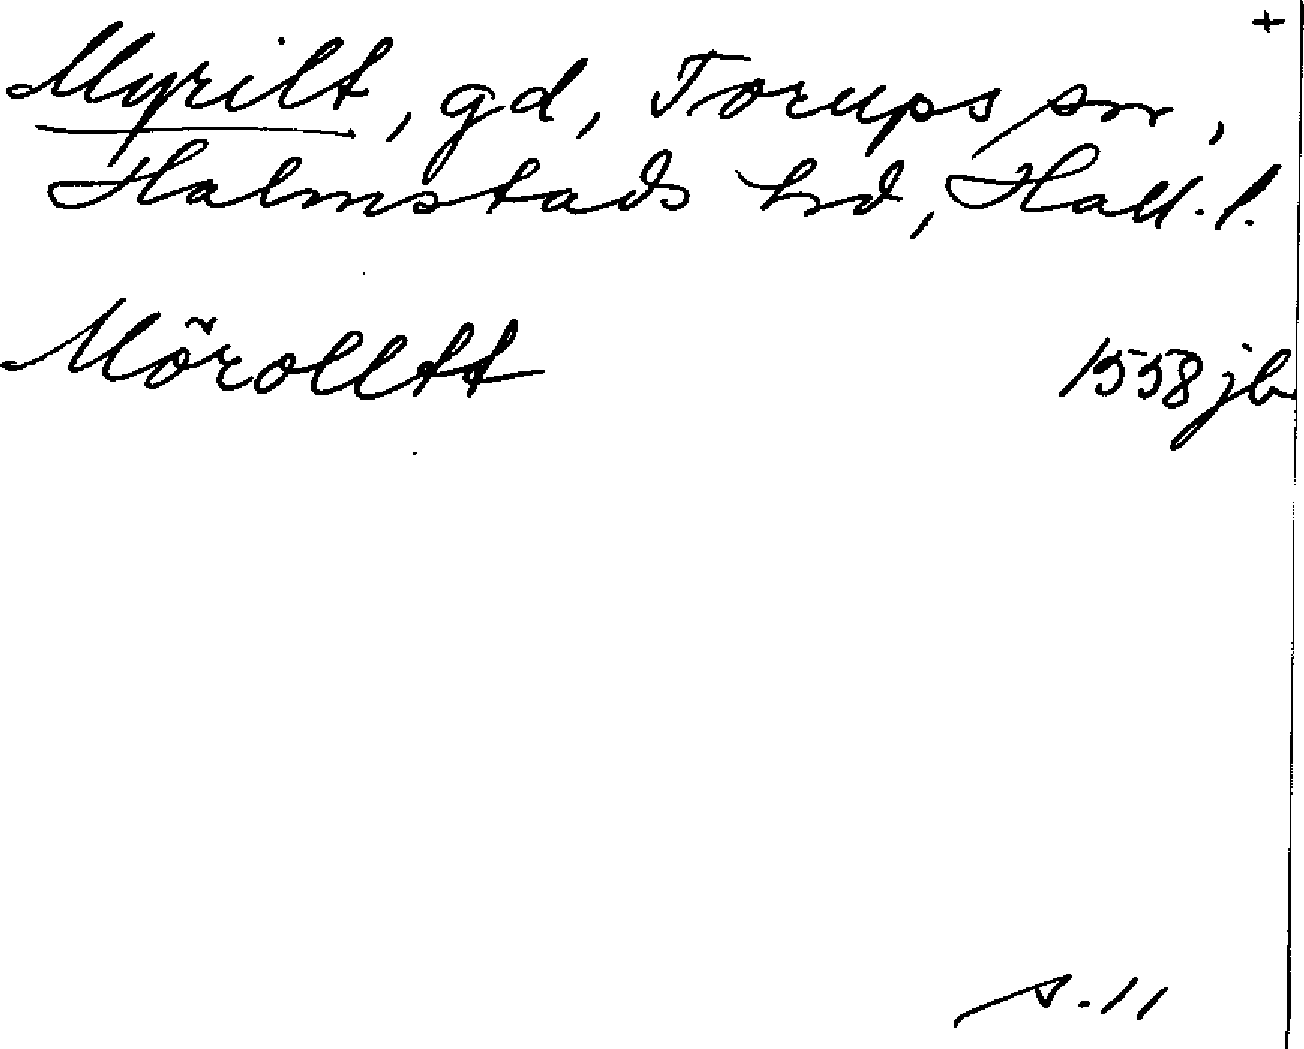 +
Myrilt, gd, Torups sn,
Halmstads hd, Hall. l.
Mõrolltt 1558 jb
s. 11